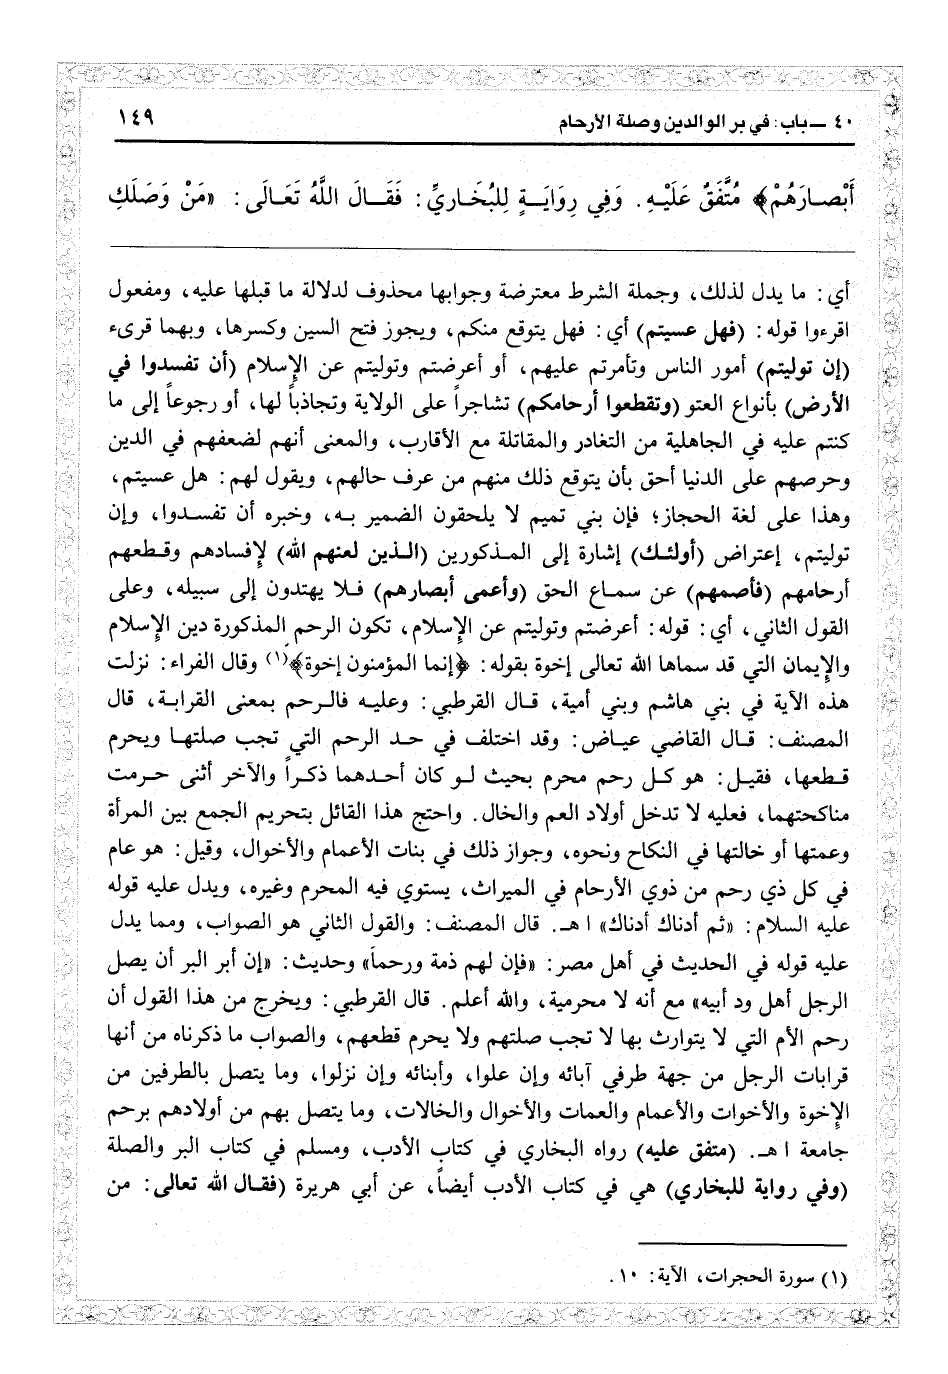 ٤٠ ــ باب: في بر الوالدين وصلة الأرحام ١٤٩
أَبْصَارَهُمْ﴾ مُتَّفَقٌ عَلَيْهِ. وَفِي رِوَايَةٍ لِلْبُخَارِيِّ: فَقَالَ اللَّهُ تَعَالَى: «مَنْ وَصَلَكِ
أي: ما يدل لذلك، وجملة الشرط معترضة وجوابها محذوف لدلالة ما قبلها عليه، ومفعول
اقرءوا قوله: (فهل عسيتم) أي: فهل يتوقع منكم، ويجوز فتح السين وكسرها، وبهما قرىء
(إن توليتم) أمور الناس وتأمرتم عليهم، أو أعرضتم وتوليتم عن الإسلام (أن تفسدوا في
الأرض) بأنواع العتو (وتقطعوا أرحامكم) تشاجراً على الولاية وتجاذباً لها، أو رجوعاً إلى ما
كنتم عليه في الجاهلية من التغادر والمقاتلة مع الأقارب، والمعنى أنهم لضعفهم في الدين
وحرصهم على الدنيا أحق بأن يتوقع ذلك منهم من عرف حالهم، ويقول لهم: هل عسيتم،
وهذا على لغة الحجاز؛ فإن بني تميم لا يلحقون الضمير به، وخبره أن تفسدوا، وإن
توليتم، إعتراض (أولئك) إشارة إلى المذكورين (الذين لعنهم الله) لإفسادهم وقطعهم
أرحامهم (فأصمهم) عن سماع الحق (وأعمى أبصارهم) فلا يهتدون إلى سبيله، وعلى
القول الثاني، أي: قوله: أعرضتم وتوليتم عن الإسلام، تكون الرحم المذكورة دين الإسلام
والإيمان التي قد سماها الله تعالى إخوة بقوله: ﴿إنما المؤمنون إخوة﴾(١) وقال الفراء: نزلت
هذه الآية في بني هاشم وبني أمية، قال القرطبي: وعليه فالرحم بمعنى القرابة، قال
المصنف: قال القاضي عياض: وقد اختلف في حد الرحم التي تجب صلتها ويحرم
قطعها، فقيل: هو كل رحم محرم بحيث لو كان أحدهما ذكراً والآخر أثنى حرمت
مناكحتهما، فعليه لا تدخل أولاد العم والخال. واحتج هذا القائل بتحريم الجمع بين المرأة
وعمتها أو خالتها في النكاح ونحوه، وجواز ذلك في بنات الأعمام والأخوال، وقيل: هو عام
في كل ذي رحم من ذوي الأرحام في الميراث، يستوي فيه المحرم وغيره، ويدل عليه قوله
عليه السلام: «ثم أدناك أدناك» ا هـ. قال المصنف: والقول الثاني هو الصواب، ومما يدل
عليه قوله في الحديث في أهل مصر: «فإن لهم ذمة ورحماً» وحديث: «إن أبر البر أن يصل
الرجل أهل ود أبيه» مع أنه لا محرمية، والله أعلم. قال القرطبي: ويخرج من هذا القول أن
رحم الأم التي لا يتوارث بها لا تجب صلتهم ولا يحرم قطعهم، والصواب ما ذكرناه من أنها
قرابات الرجل من جهة طرفي آبائه وإن علوا، وأبنائه وإن نزلوا، وما يتصل بالطرفين من
الإخوة والأخوات والأعمام والعمات والأخوال والخالات، وما يتصل بهم من أولادهم برحم
جامعة ا هـ. (متفق عليه) رواه البخاري في كتاب الأدب، ومسلم في كتاب البر والصلة
(وفي رواية للبخاري) هي في كتاب الأدب أيضاً، عن أبي هريرة (فقال الله تعالى: من
(١) سورة الحجرات، الآية: ١٠.